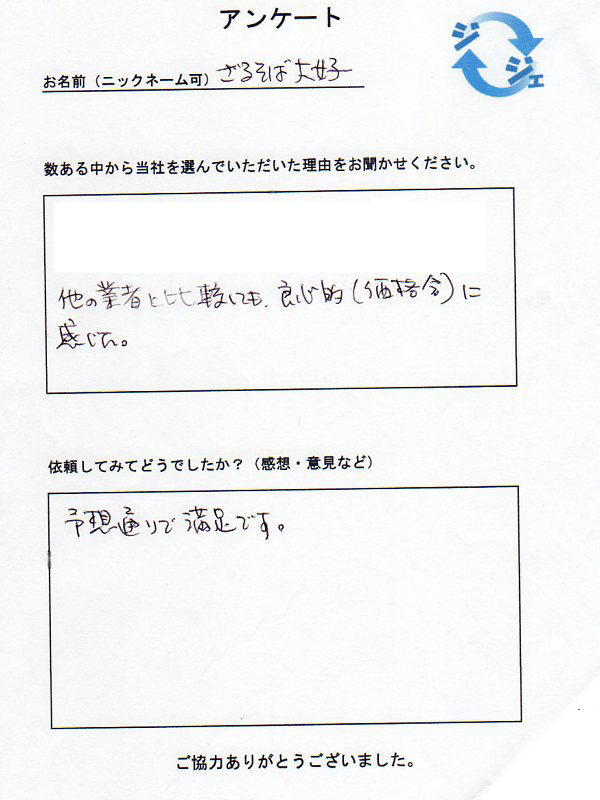 アンケート
ジジェ
お名前（ニックネーム可）ざるそば大好
数ある中から当社を選んでいただいた理由をお聞かせください。
他の業者と比較しても、良心的（価格含）に
感じた。
依頼してみてどうでしたか？（感想・意見など）
予想通りで満足です。
ご協力ありがとうございました。